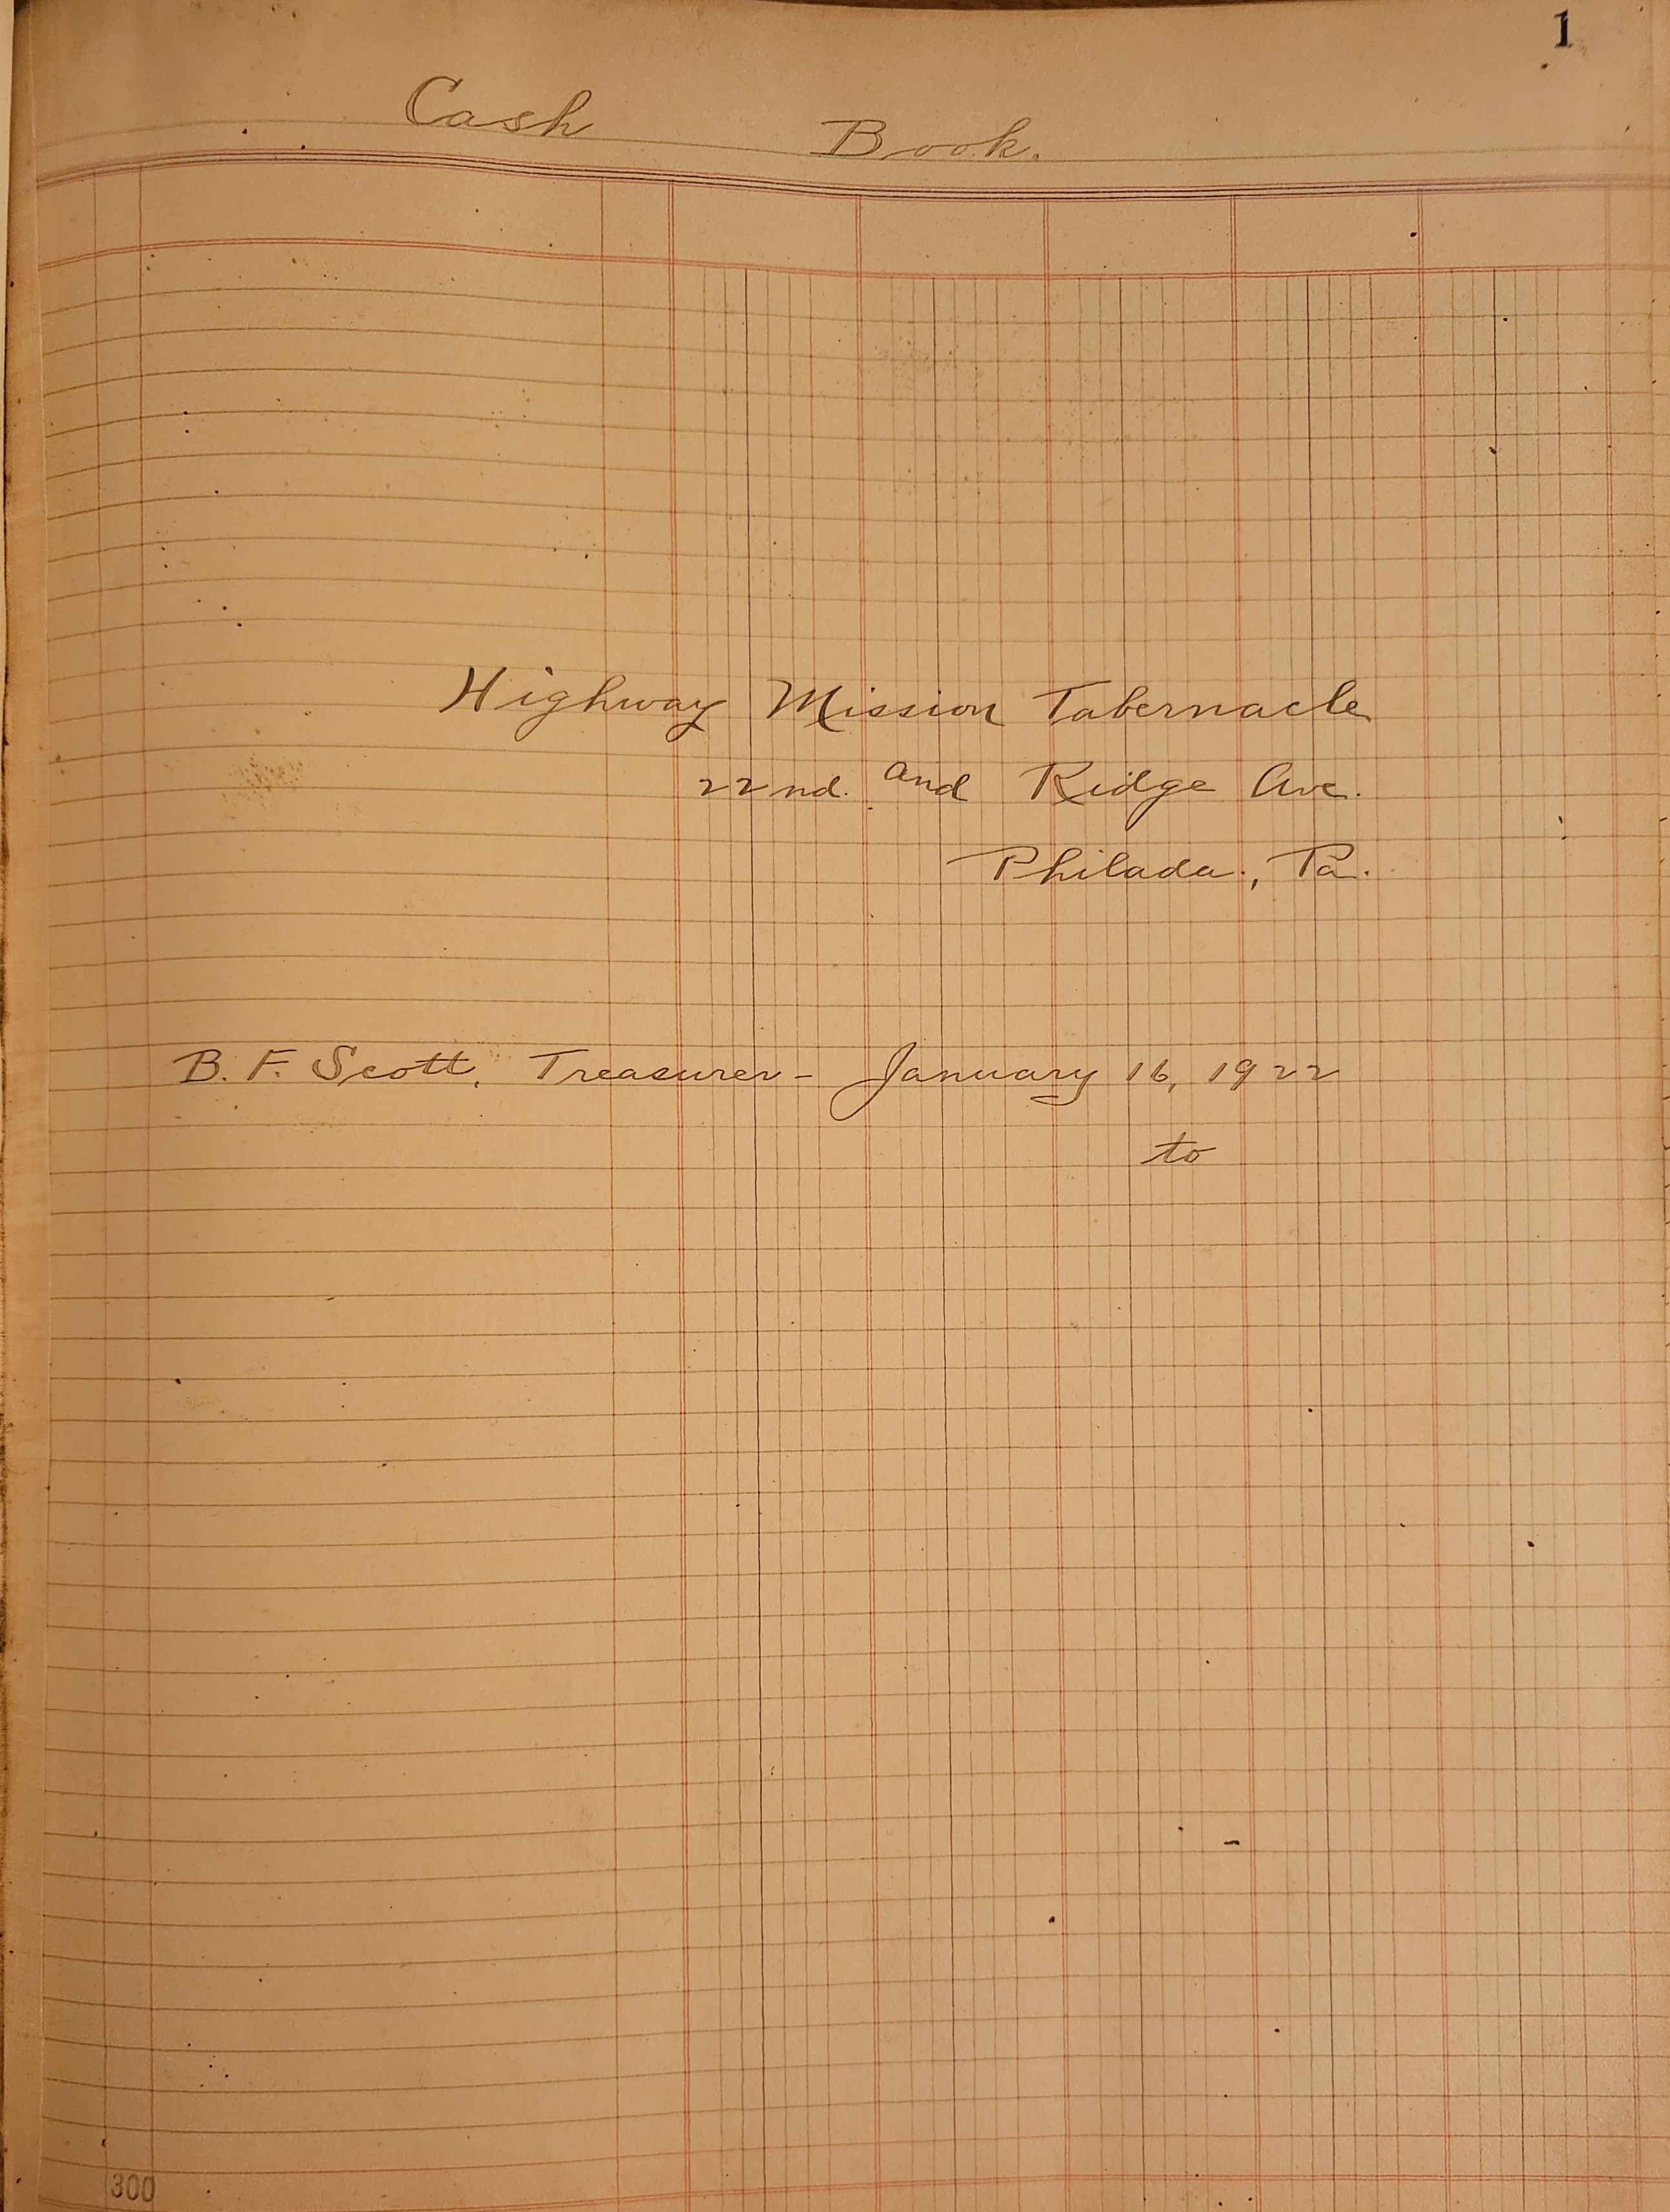 1
Cash Book.
Highway Mission Tabernacle
22nd. and Ridge Ave.
Philada., Pa.
B. F. Scott, Treasurer - January 16, 1922
to
300